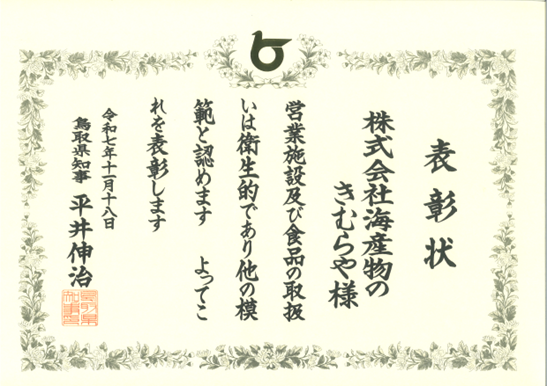 表彰状
株式会社海産物の
きむらや様
営業施設及び食品の取扱
いは衛生的であり他の模
範と認めます　よってこ
れを表彰します
令和七年十一月十八日
鳥取県知事　平井伸治